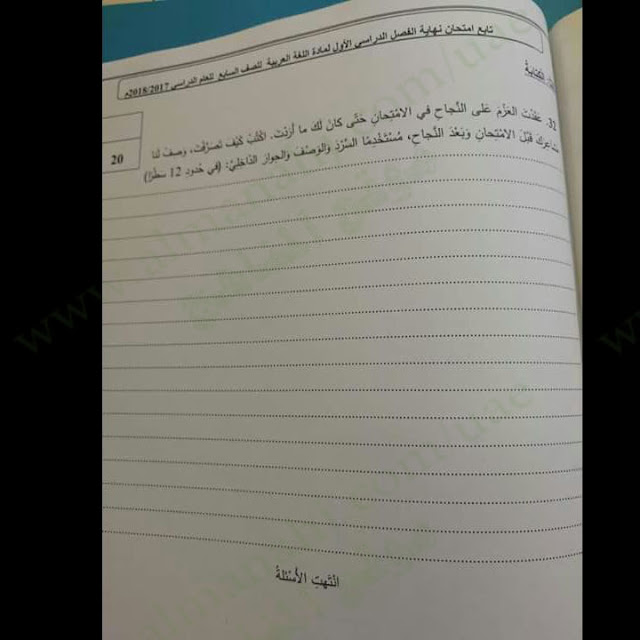 تابع امتحان نهاية الفصل الدراسي الأول لمادة اللغة العربية للصف السابع للعام الدراسي 2018/2017م
الكتابة
20
32. عَقَدْتَ العَزْمَ عَلى النَّجاحِ في الامْتِحانِ حَتّى كانَ لَكَ ما أَرَدْتَ. اكْتُبْ كَيْفَ تَصَرَّفْتَ، وَصِفْ لَنا
قَبْلَ الامْتِحانِ وَبَعْدَ النَّجاحِ، مُسْتَخْدِمًا السَّرْدَ وَالوَصْفَ وَالحِوارَ الدّاخِلِيَّ: (في حُدودِ 12 سَطْرًا)
انْتَهَتِ الأَسْئِلَةُ
www.almanahj.com/uae
موقع المناهج
almanahj.com/uae